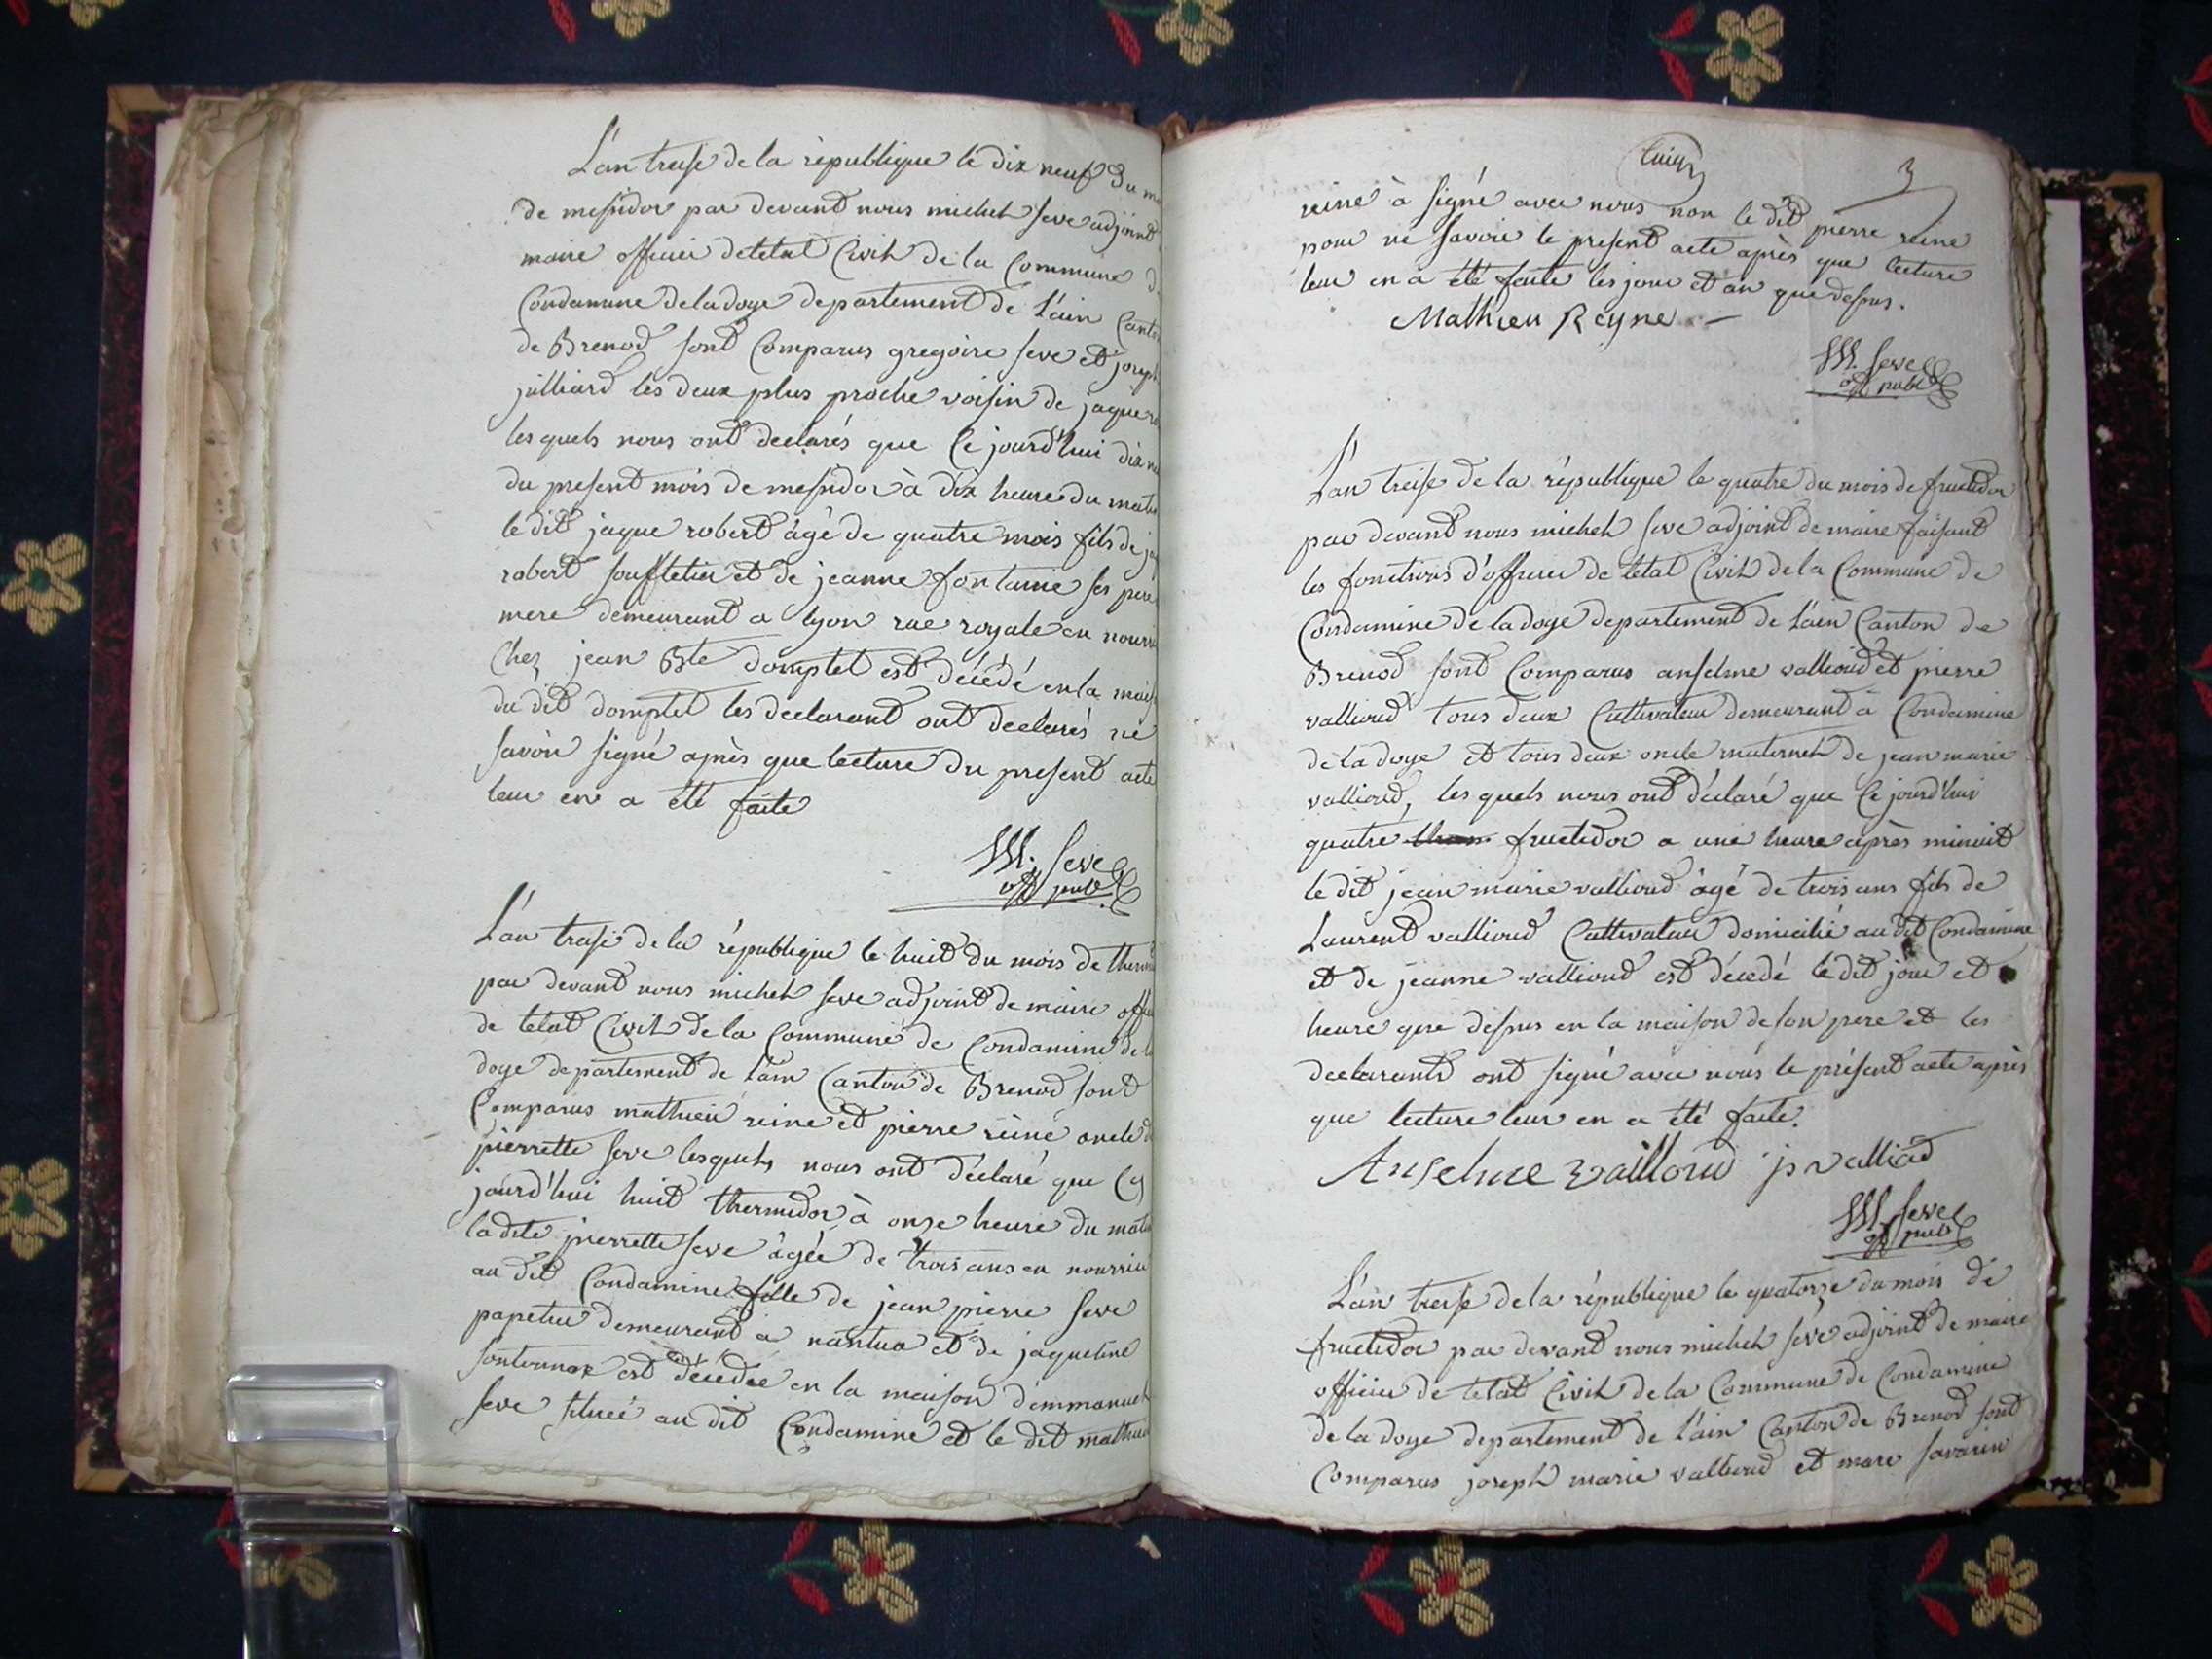 L'an treise de la république le dix neuf du
de messidor par devant nous michel seve adjoint
maire officier de letat Civil de la Commune
Condamine de la doye departement de L'ain Canton
de Brenod sont Comparus gregoire seve et joseph
julliard les deux plus proche voisin de jaque
les quels nous ont declarés que Ce jourd'hui dix
du present mois de messidor à dix heure du matin
le dit jaque robert âgé de quatre mois fils de
robert souffletier et de jeanne fontaine ses pere
mere demeurant a lyon rue royale en nourri
Chez jean Bte domptet est décédé en la mais
du dit domptet les declarant ont declarés ne
savoir signé après que lecture du present acte
leur en a été faite
M. Seve
off publ
L'an treise de la république le huit du mois de therm
par devant nous michel seve adjoint de maire offi
de letat Civil de la Commune de Condamine de la
doye departement de L'ain Canton de Brenod sont
Comparus mathieu reine et pierre reine oncle
pierrette seve lesquels nous ont déclaré que Ce
jourd'hui huit thermidor à onze heure du matin
la dite pierrette seve âgée de trois ans en nourrice
au dit Condamine fille de jean pierre seve
papetier demeurant a nantua et de jaqueline
est décédée en la maison d'emmanuel
seve située au dit Condamine et le dit mathieu
3
reine à signé avec nous non le dit pierre reine
pour ne savoir le present acte après que lecture
leur en a été faite les jour et an que dessus.
Mathieu Reyne
M. Seve
off publ
L'an treise de la république le quatre du mois de fructidor
par devant nous michel seve adjoint de maire faisant
les fonctions d'officier de letat Civil de la Commune de
Condamine de la doye departement de L'ain Canton de
Brenod sont Comparus anselme vallioud et pierre
vallioud tous deux Cultivateur demeurant à Condamine
de la doye et tous deux oncle maternel de jean marie
vallioud, les quels nous ont déclaré que Ce jourd'hui
quatre fructidor a une heure après minuit
le dit jean marie vallioud âgé de trois ans fils de
Laurent vallioud Cultivateur domicilié au dit Condamine
et de jeanne vallioud est décedé le dit jour et
heure que dessus en la maison de son pere et les
declarants ont signé avec nous le présent acte après
que lecture leur en a été faite.
Anselme vailloud jp valliod
M. Seve
off publ
L'an treise de la république le quatorze du mois de
fructidor par devant nous michel seve adjoint de maire
officier de letat Civil de la Commune de Condamine
de la doye departement de L'ain Canton de Brenod sont
Comparus joseph marie vallioud et marc savarin